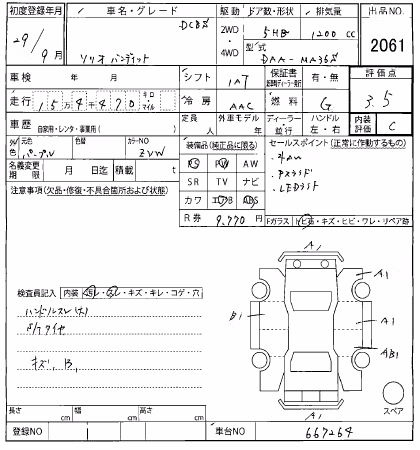 初度登録年月 車名・グレード 駆動 ドア数・形状 排気量 出品NO.
DCBS
2WD ・ 4WD 5HB 1200cc
29/9月 ソリオ バンディット 型式 DAA-MA36S 2061
車検 年 月 シフト IAT 保証書 有・無 評価点
走行 15万4千470 キロ マイル 冷房 AAC 燃料 G 3.5
車歴 自家用・レンタ・事業用( ) 定員 人 外車モデル 年 ディーラー 並行 ハンドル 左・右 内装評価 C
外色 元色 パープル 色替 カラーNO ZVW
装備品(純正品に限る) セールスポイント(正常に作動するもの)
名義変更期限 月 日迄 積載 t
PS PW AW
SR TV ナビ
カワ エアB ABS
R券 9,770円
注意事項(欠品・修復・不具合箇所および状態)
Fガラス トビ石・キズ・ヒビ・ワレ・リペア跡
検査員記入 内装 ヨゴレ・スレ・キズ・キレ・コゲ・穴
ハンドルスレ(大)
キズ、B、
A1
A1
B1
A1
AB1
A1
スペア
長さ cm 幅 cm 高さ cm
登録NO 車台NO 667264